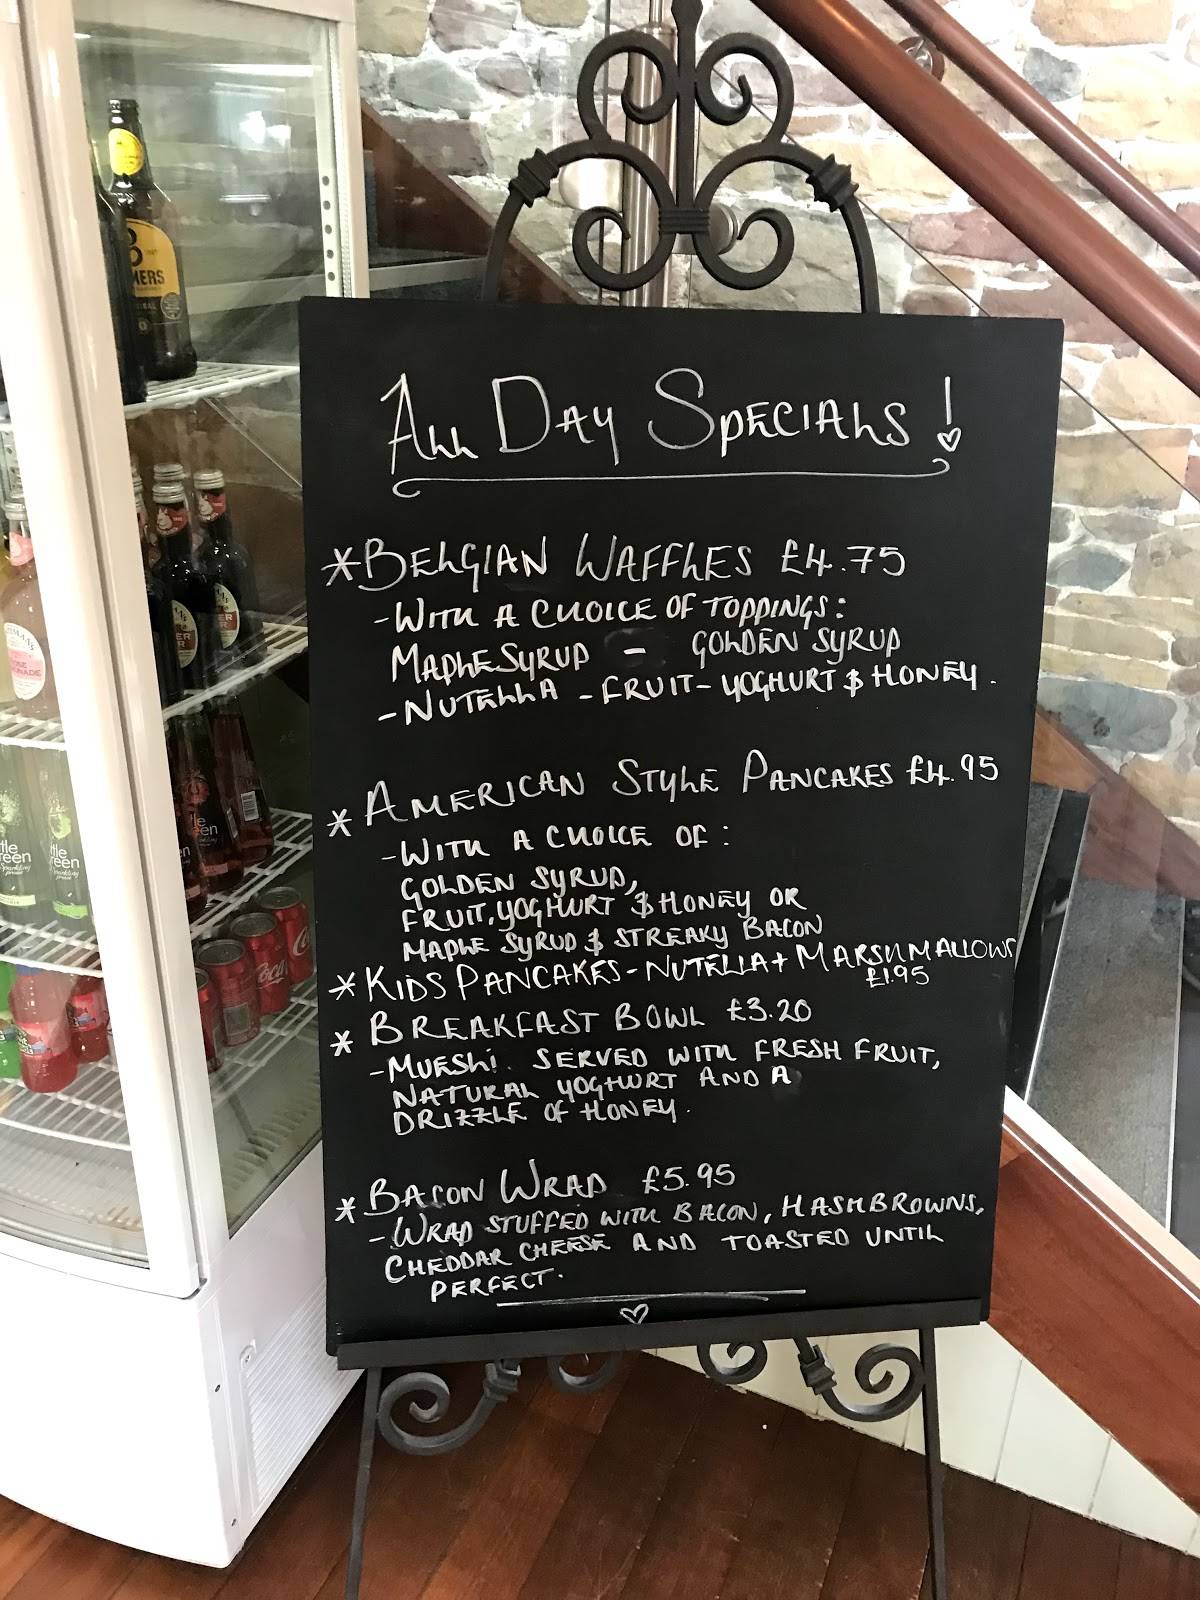 All Day Specials!
* Belgian Waffles £4.75
- With a choice of toppings:
Maple Syrup - Golden Syrup
- Nutella - Fruit - Yoghurt & Honey.
* American Style Pancakes £4.95
- With a choice of:
Golden Syrup,
Fruit, Yoghurt & Honey or
Maple Syrup & Streaky Bacon
* Kids Pancakes - Nutella + Marshmallows
£1.95
* Breakfast Bowl £3.20
- Mueshi. Served with fresh fruit,
Natural Yoghurt and a
Drizzle of Honey.
* Bacon Wrap £5.95
- Wrap stuffed with Bacon, Hashbrowns,
Cheddar Cheese and toasted until
perfect.
MERS
Coca